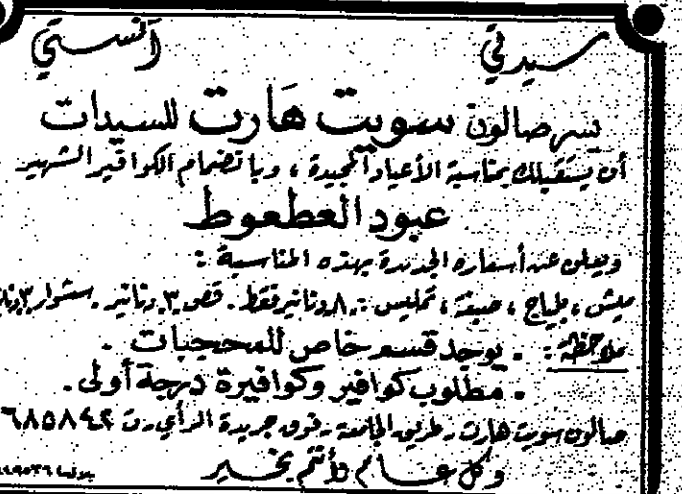 سيدتي آنستي
يسر صالون سويت هارت للسيدات
أن يستقبلك بمناسبة الأعياد المجيدة ، وبانضمام الكوافير الشهير
عبود العطعوط
ويعلن عن أسعاره الجديدة بهذه المناسبة :
ميش ، بلياج ، صبغة ، تمليس : ٨ دنانير فقط . قص ٣ دنانير . سشوار ٣
ملاحظة : . يوجد قسم خاص للمحجبات .
. مطلوب كوافير وكوافيرة درجة أولى .
صالون سويت هارت . طريق الجامعة . فوق جريدة الرأي . ت ٦٨٥٨٤٢
وكل عام وأنتم بخير